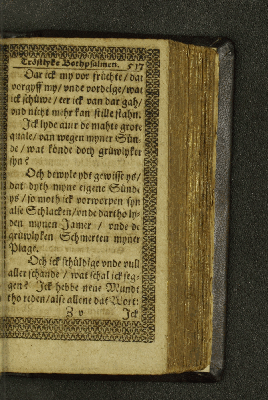 Tröstlyke Bothpsalmen. 517
Dar ick my vor früchte / dat
vorgyff my / vnde vordelge / wat
ick schüwe / eer ick van dar gah /
vnd nicht mehr kan stille stahn.
Ick lyde auer de mahte grote
quale / van wegen myner Sün-
de / wat könde doch grüwlyker
syn?
Och dewyle ydt gewisse ys /
dat dyth myne eigene Sünde
ys / so moth ick vorworpen syn
alse Schlacken / vnde dartho ly-
den mynen Jamer / vnde de
grüwlyken Schmerten myner
Plage.
Och ick schüldige vnde vull
aller schande / wat schal ick seg-
gen? Ick hebbe nene Mundt
tho reden / alse allene dat Wort:
Z v Ick